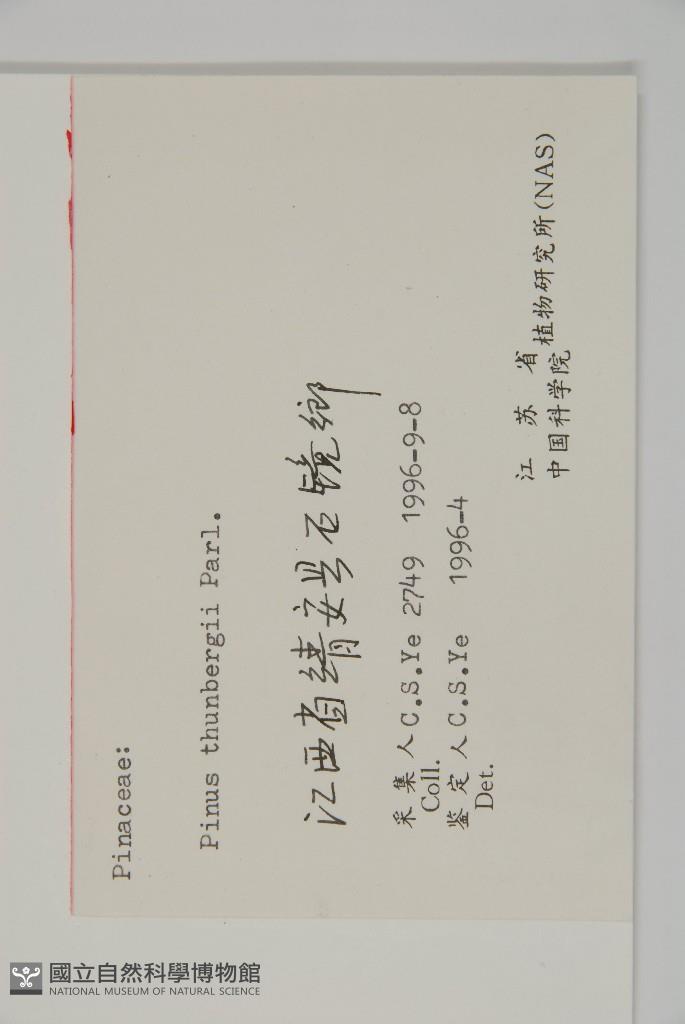 Pinaceae:
Pinus thunbergii Parl.
江西省靖安县石镜鄉
采集人 C.S.Ye 2749 1996-9-8
Coll.
鉴定人 C.S.Ye 1996-4
Det.
江苏省
中国科学院 植物研究所(NAS)
國立自然科學博物館
NATIONAL MUSEUM OF NATURAL SCIENCE